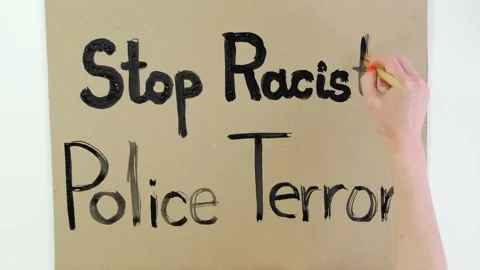 Stop Racist
Police Terror